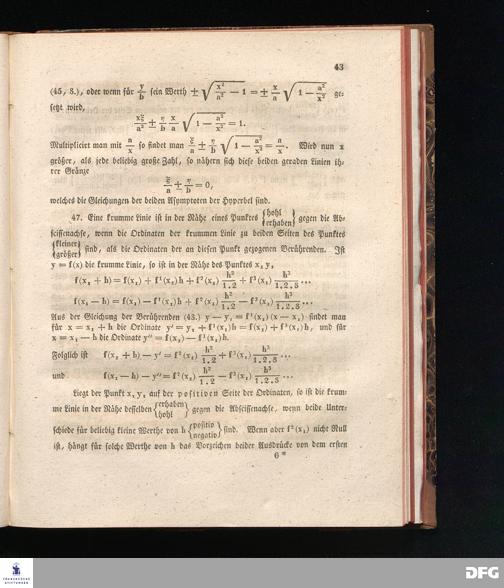 43
(45, 3.), oder wenn für y/b sein Werth ± √(x²/a² − 1) = ± x/a √(1 − a²/x²) ge-
setzt wird,
xξ/a² ± η/b x/a √(1 − a²/x²) = 1.
Multiplicirt man mit a/x so findet man ξ/a ± η/b √(1 − a²/x²) = a/x. Wird nun x
größer, als jede beliebig große Zahl, so nähern sich diese beiden geraden Linien ih-
rer Gränze
ξ/a ± η/b = 0,
welches die Gleichungen der beiden Asymptoten der Hyperbel sind.
47. Eine krumme Linie ist in der Nähe eines Punktes {hohl / erhaben} gegen die Ab-
scissenachse, wenn die Ordinaten der krummen Linie zu beiden Seiten des Punktes
{kleiner / größer} sind, als die Ordinaten der an diesen Punkt gezogenen Berührenden. Ist
y = f(x) die krumme Linie, so ist in der Nähe des Punktes x, y,
f(x, + h) = f(x,) + f¹(x,) h + f²(x,) h²/1.2 + f³(x,) h³/1.2.3 ...
f(x, − h) = f(x,) − f¹(x,) h + f²(x,) h²/1.2 − f³(x,) h³/1.2.3 ...
Aus der Gleichung der Berührenden (43.) y − y, = f¹(x,) (x − x,) findet man
für x = x, + h die Ordinate y′ = y, + f¹(x,) h = f(x,) + f¹(x,) h, und für
x = x, − h die Ordinate y″ = f(x,) − f¹(x,) h.
Folglich ist f(x, + h) − y′ = f²(x,) h²/1.2 + f³(x,) h³/1.2.3 ...
und f(x, − h) − y″ = f²(x,) h²/1.2 − f³(x,) h³/1.2.3 ...
Liegt der Punkt x, y, auf der positiven Seite der Ordinaten, so ist die krum-
me Linie in der Nähe desselben {erhaben / hohl} gegen die Abscissenachse, wenn beide Unter-
schiede für beliebig kleine Werthe von h {positiv / negativ} sind. Wenn aber f²(x,) nicht Null
ist, hängt für solche Werthe von h das Vorzeichen beider Ausdrücke von dem ersten
6*
FRANCKESCHE
STIFTUNGEN
DFG